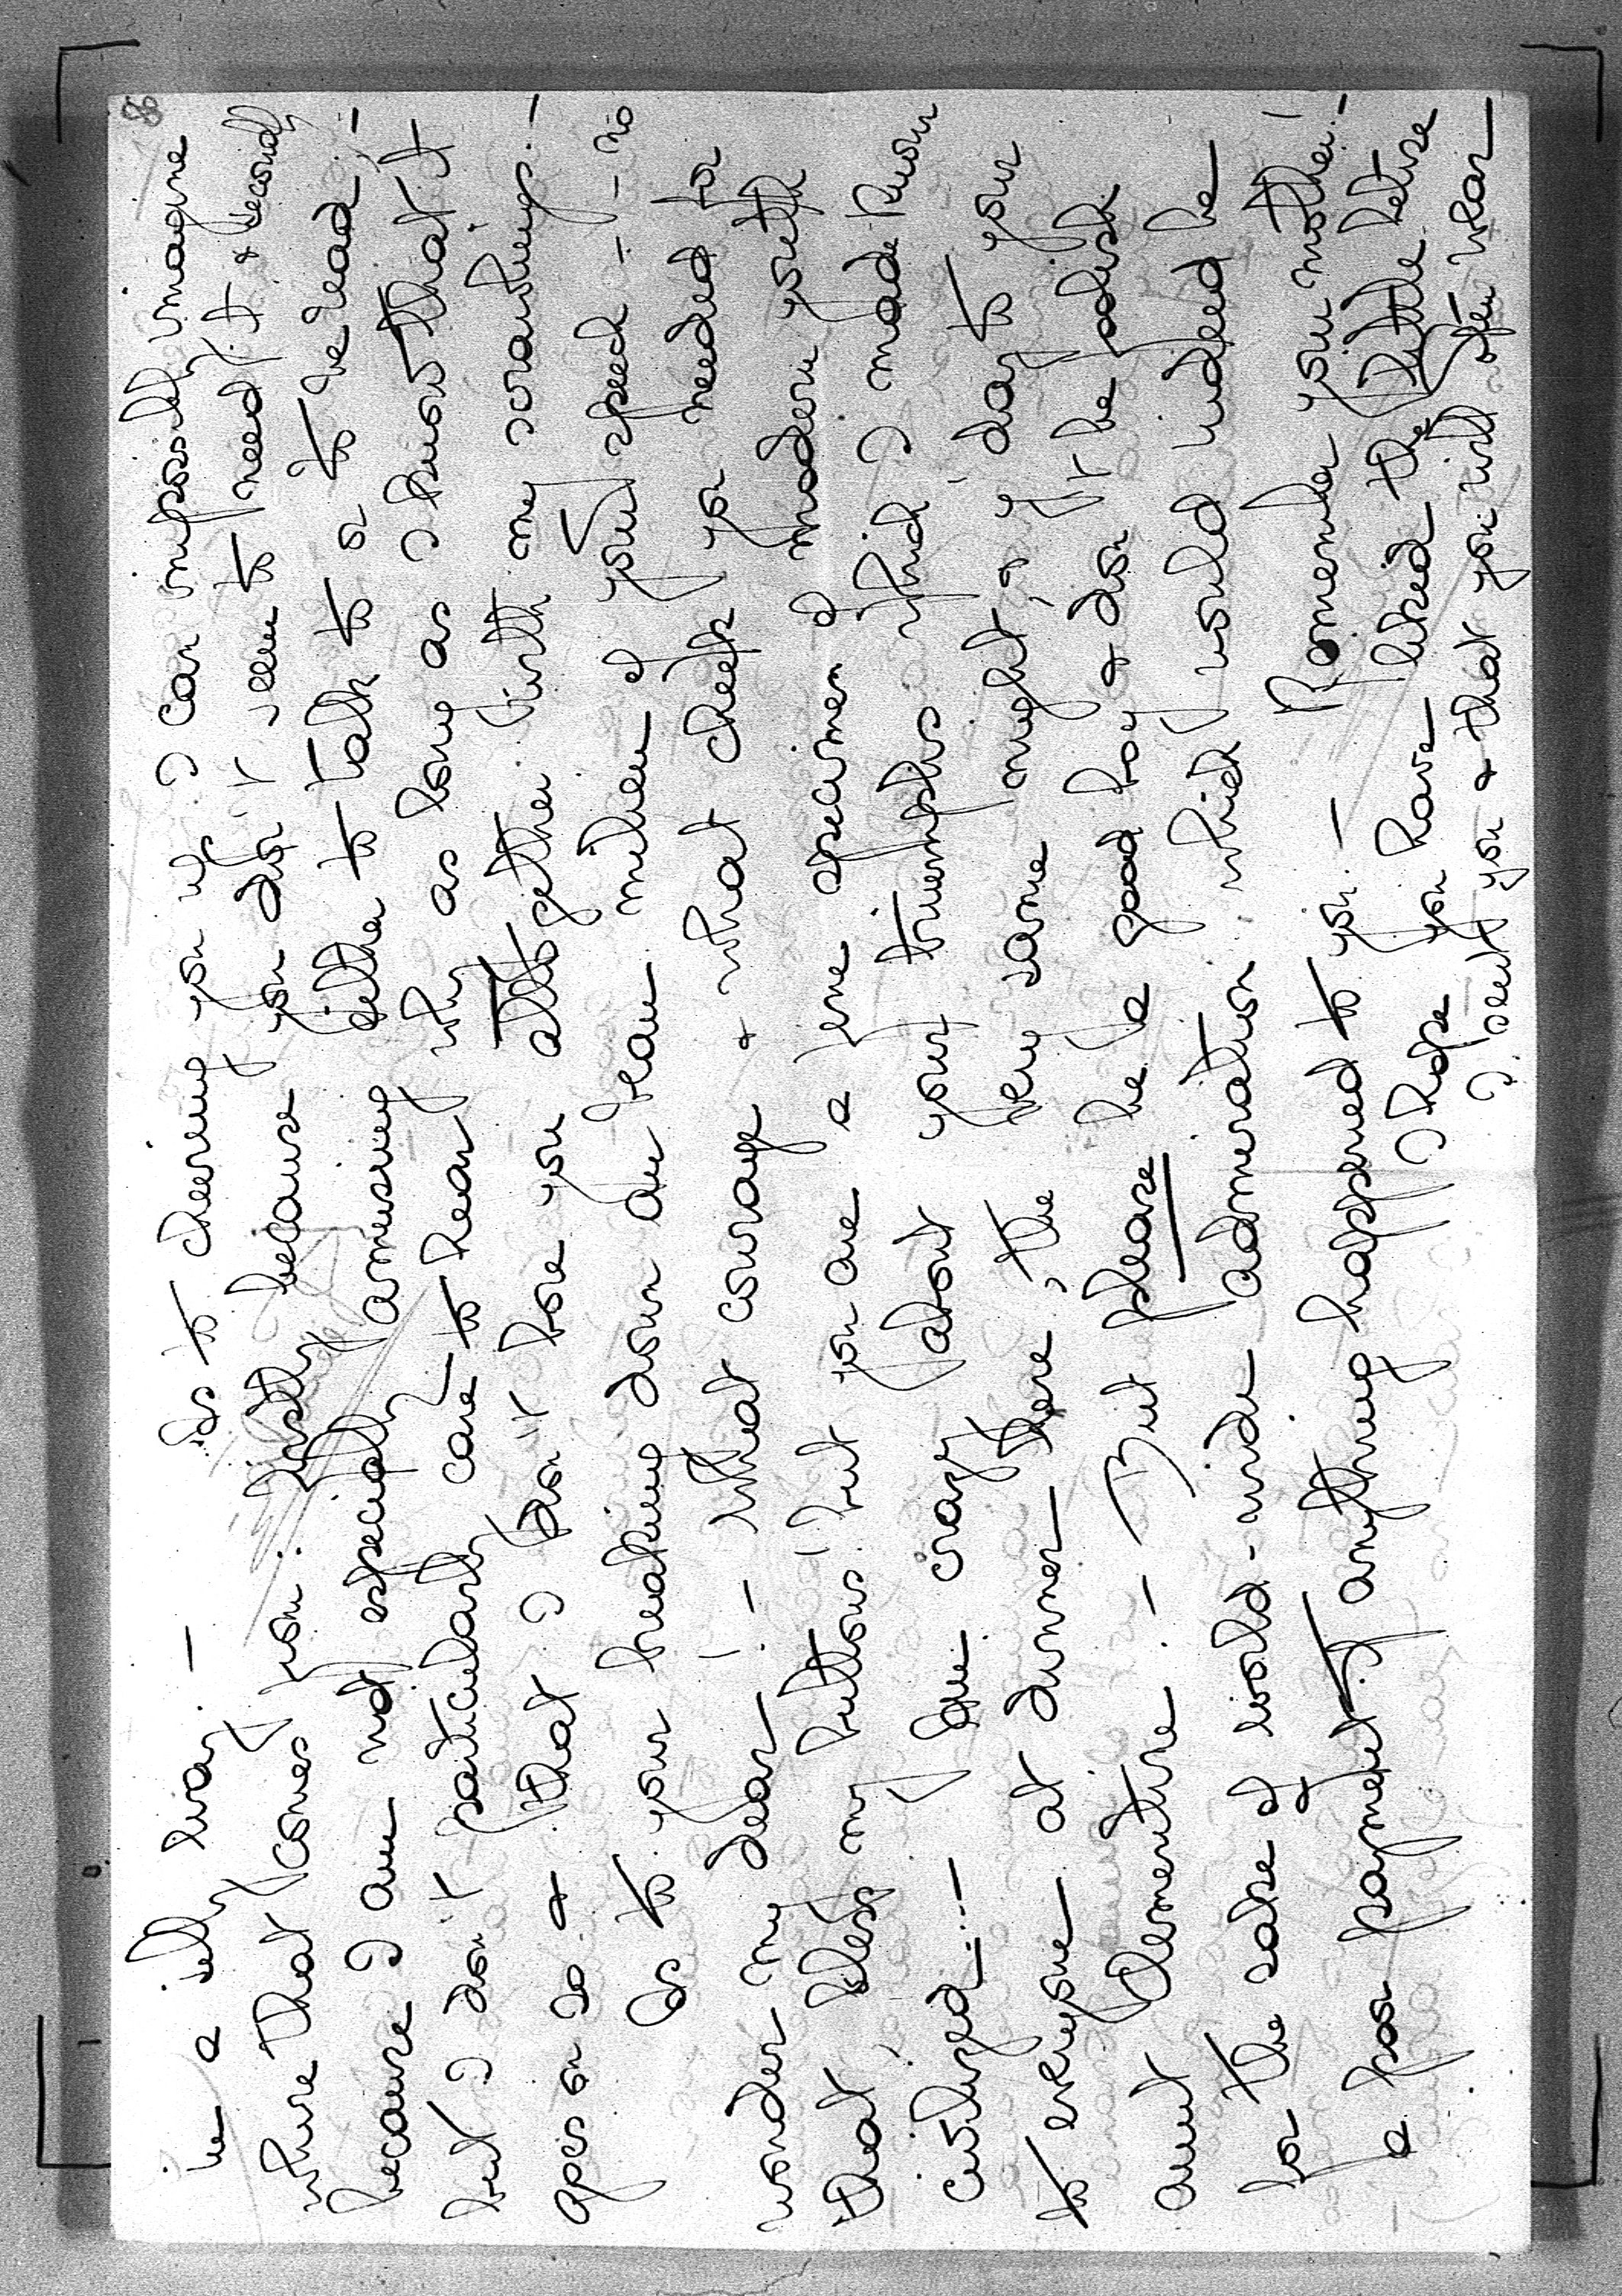 86
in a silly way. — As to cheering you up I can impossibly imagine
where that comes from. Firstly because you don't seem to need it & secondly
because I am not especially amusing either to talk to or to be read. —
but I don't particularly care to hear why as long as I know that it
goes on so & that I don't bore you altogether with my scratchings. —
As to your breaking down an iron milieu of your speed — no
wonder my dear! — What courage & what cheek you needed for
that, bless my buttons! but you are a fine specimen of modern youth
civilized...! — I am crazy about your triumphs which I made known
to everyone at dinner here, the very same night, o. y. day to your
aunt Clementine. — But please be a good boy & don't be foolish
for the sake of world-wide admiration which would indeed be
a poor payment if anything happened to you. — Remember your mother! —
I hope you have liked the little lettre
I sent you & that you will often wear